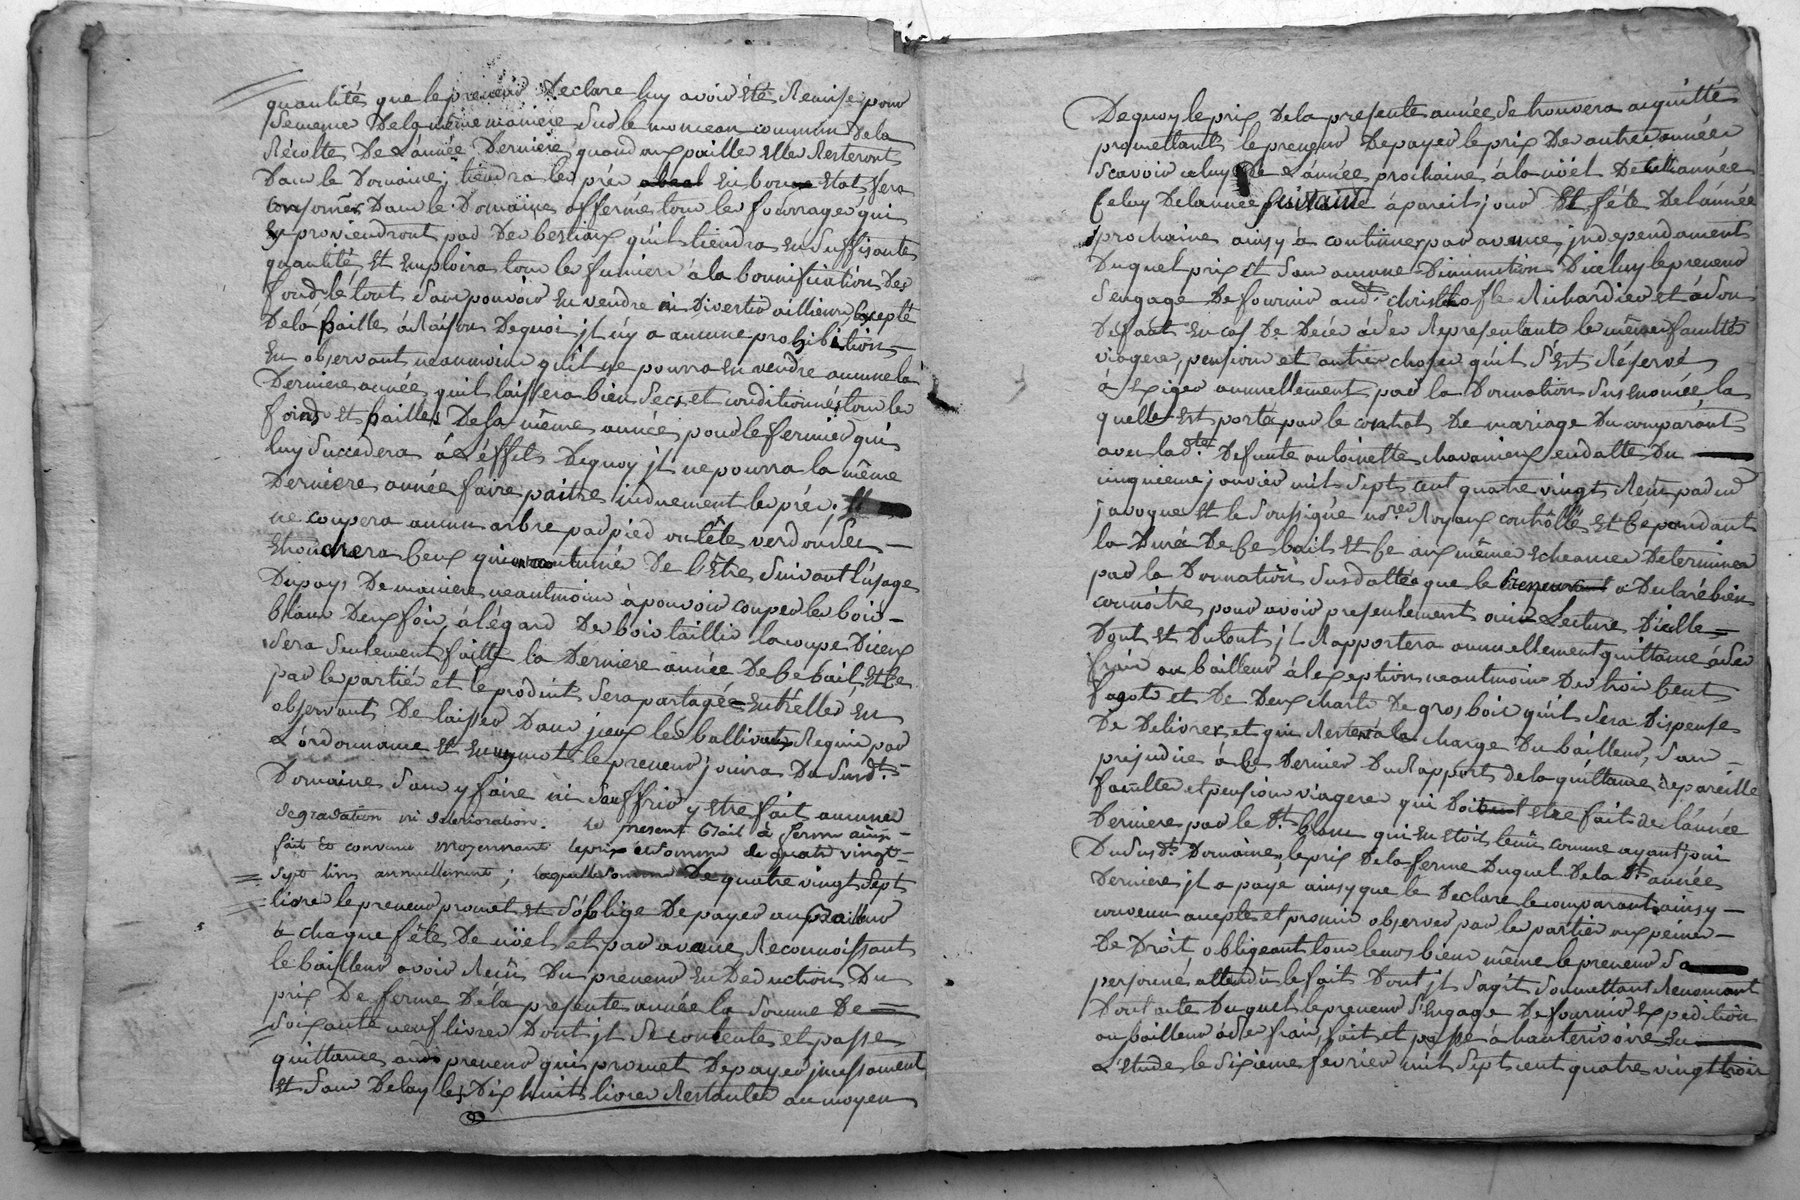 quantités que le preneur Declare luy avoir été Remise pour
semence De la même maniere sur le monceau commun De la
Récolte De L'année Derniere, quand aux paille Elles Resteront
Dans le Domaine; tiendra les prés en bon Etat, fera
consomer Dans le Domaine affermé tous les fourrages qui
en proviendront par Des bestiaux qu'il tiendra en suffisante
quantité Et Emploira tous les fumiers à la bonnification Des
fond le tout sans pouvoir En vendre ni Divertir aillieurs, Excepté
De la paille à Raison De quoi jl n'y a aucune prohibition
En observant neanmoins qu'il ne pourra En vendre aucune la
Derniere année, qu'il laissera bien secs et conditionnés tous les
foins Et pailles De la même année pour le fermier qui
luy succedera à L'éffet De quoy jl ne pourra la même
Derniere année faire paitre induement les prés;
ne coupera aucun arbre par pied ou tête verd ou sec
Ebranchera Ceux qui De l'Être suivant l'usage
Du pays De maniere neantmoins à pouvoir couper les bois
blanc Deux fois, à l'égard Des bois taillis la coupe D'iceux
sera seulement faitte la Derniere année De Ce bail, Et Ce
par les partiés et le produit sera partagée Entrélles, En
observant De laisser Dans jceux les ballivaux Requis par
L'ordonnance Et En un mot le preneur jouira Du susdt.
Domaine sans y faire ni souffrir y etre fait aucunes
degradation ni deterioration. le present Bail à ferme ainsi
fait et convenu moyennant le prix et somme de quatre vingt
sept livres annuellement; laquelle somme De quatre vingt sept
livres le preneur promet et s'oblige De payer au Bailleur
à chaque fête De nöel et par avance Reconnoissant
le bailleur avoir Reçû Du preneur En Deduction Du
prix De ferme De la presente année la somme De
soixante neuf livres Dont jl se contente et passe
quittance audt preneur qui promet De payer jncessament
Et sans Delay les Dix huit livres Restantes au moyen
De quoy le prix De la presente année se trouvera acquitté
promettant le preneur De payer le prix Des autres années
scavoir celuy De L'année prochaine à la nöel De Cette année
Celuy De l'année suivante à pareil jour Et fête De l'année
prochaine ainsy à continuer par avance, jndependament
Duquel prix et sans aucune Diminution D'iceluy le preneur
s'engage De fournir audt. christhofle Richardier et à son
Defaut En cas De Decés à ses Representants les mêmes faculté
viagere, pension et autres choses qu'il s'est Réservé
à Exiger annuellement par la Donnation susénoncée, la
quelle est portée par le contrat De mariage Du comparant
avec lad.te Defunte antoinette chavanieux en datte Du
cinquieme janvier mil sept cent quatre vingt Reçu par
javogues Et le soussigné no.re Royaux contrôllé Et Ce pendant
la Durée De Ce bail Et Ce aux mêmes Echeances Determinées
par la Donnation susdattée que le preneur a Declaré bien
connoître pour avoir presentement oui Lecture D'icelle
Dont Et Du tout jl Rapportera annuellement quittance à ses
frais au bailleur à l'exception neantmoins De trois Cent
fagots et De Deux charts De gros bois qu'il sera Dispensé
De Delivrer, et qui Restent à la charge Du bailleur, sans
prejudice à Ce Dernier Du Rapport de la quittance de pareille
facultes et pension viagere qui Doit etre fait de l'année
Derniere par le St. blanc qui En étoit tenu comme ayant joui
Du susdt. Domaine; le prix De la ferme Duquel De la Dt. année
Derniere jl a payé ainsy que le Declare le comparant, ainsy
convenu accepté et promis observer par les parties aux peines
De Droit, obligeant tous leurs biens même le preneur sa
personne attendu le fait Dont jl s'agit soumettant Renonçant
Dont acte Duquel le preneur s'engage De fournir Expedition
au bailleur à ses frais, fait et passé à hauterivoire En
L'étude le sixieme fevrier mil sept cent quatre vingt trois